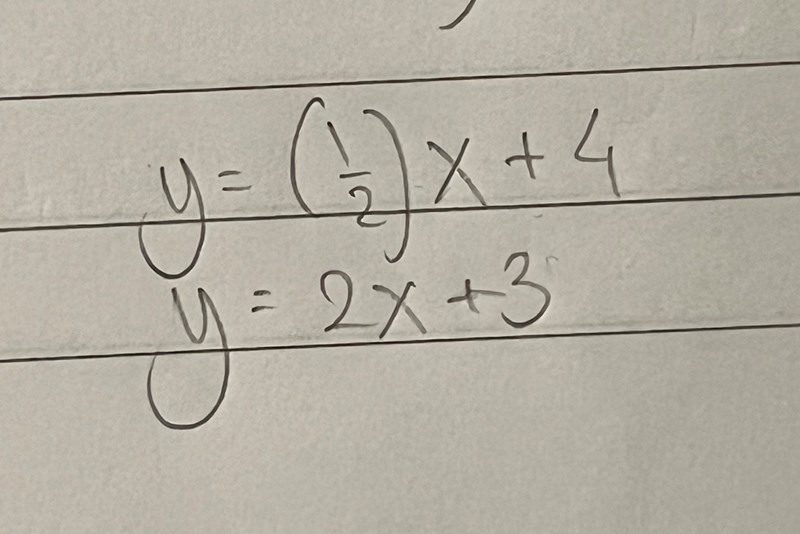 y = (1/2) x + 4
y = 2x + 3